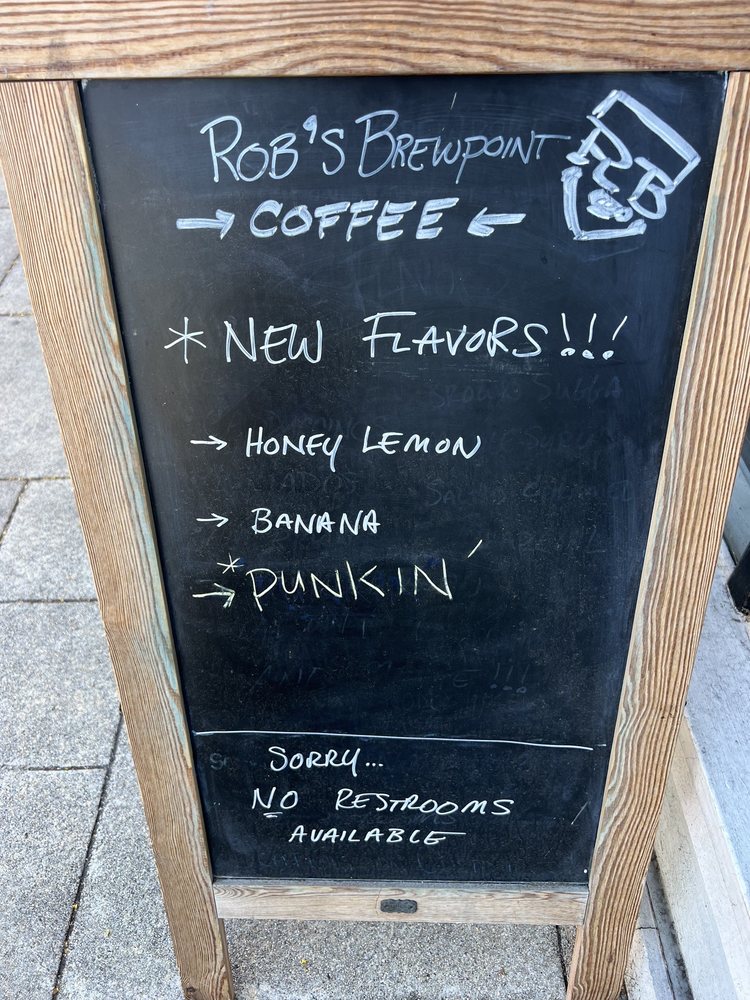 ROB'S BREWPOINT
→ COFFEE ←
RCB
* NEW FLAVORS!!!
→ HONEY LEMON
→ BANANA
*→ PUNKIN'
SORRY...
NO RESTROOMS
AVAILABLE